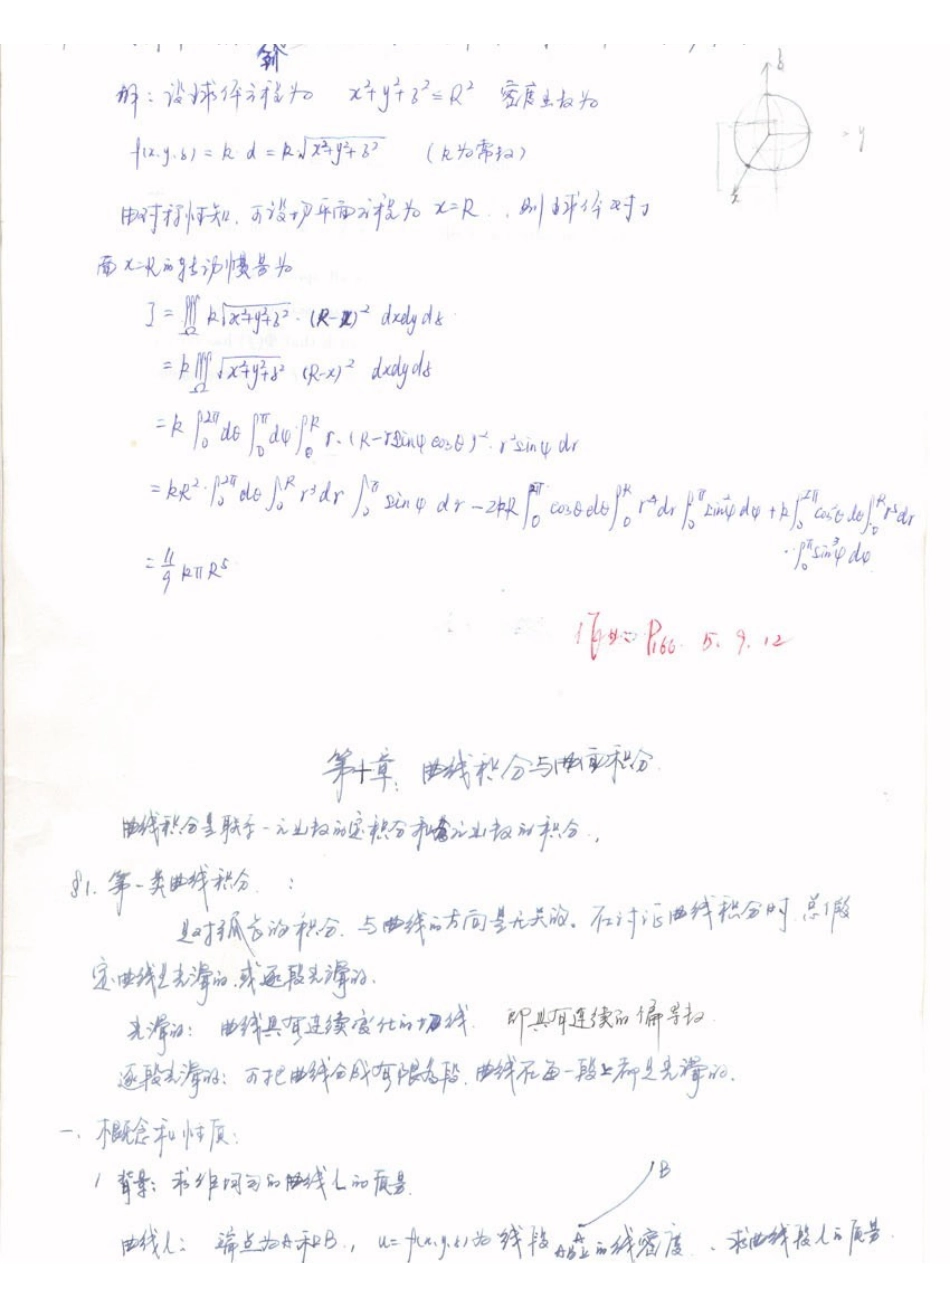 到
解：设球体方程为 x²+y²+z²=R² 密度函数为
f(x,y,z)=k d = k√(x²+y²+z²) (k为常数)
由对称性知，可设切平面方程为 x=R ，则球体对于
面x=R的转动惯量为
J=∭_Ω k√(x²+y²+z²)·(R-x)² dxdydz
=k∭_Ω √(x²+y²+z²) (R-x)² dxdydz
=k∫₀^{2π}dθ∫₀^π dφ∫₀^R r·(R-rsinφcosθ)²·r²sinφ dr
=kR²·∫₀^{2π}dθ∫₀^R r³dr∫₀^π sinφ dr-2kR∫₀^{2π}cosθdθ∫₀^R r⁴dr∫₀^π sin²φdφ+k∫₀^{2π}cos²θdθ∫₀^R r⁵dr
·∫₀^π sin³φdφ
=11/9 kπR⁶
作业：P166. 5. 9. 12
第十章：曲线积分与曲面积分
曲线积分是联系一元函数的定积分和多元函数的积分.
§1. 第一类曲线积分：
是对弧长的积分. 与曲线的方向是无关的。在讨论曲线积分时，总假
定曲线是光滑的.或逐段光滑的.
光滑的：曲线具有连续变化的切线. 即具有连续的偏导数
逐段光滑的：可把曲线分成有限多段，曲线在每一段上都是光滑的.
一、概念和性质：
1 背景：求非均匀的曲线L的质量.
B
A
曲线L：端点为A和B., u=f(x,y,z)为线段AB上的线密度、求曲线段L的质量.
z
y
x